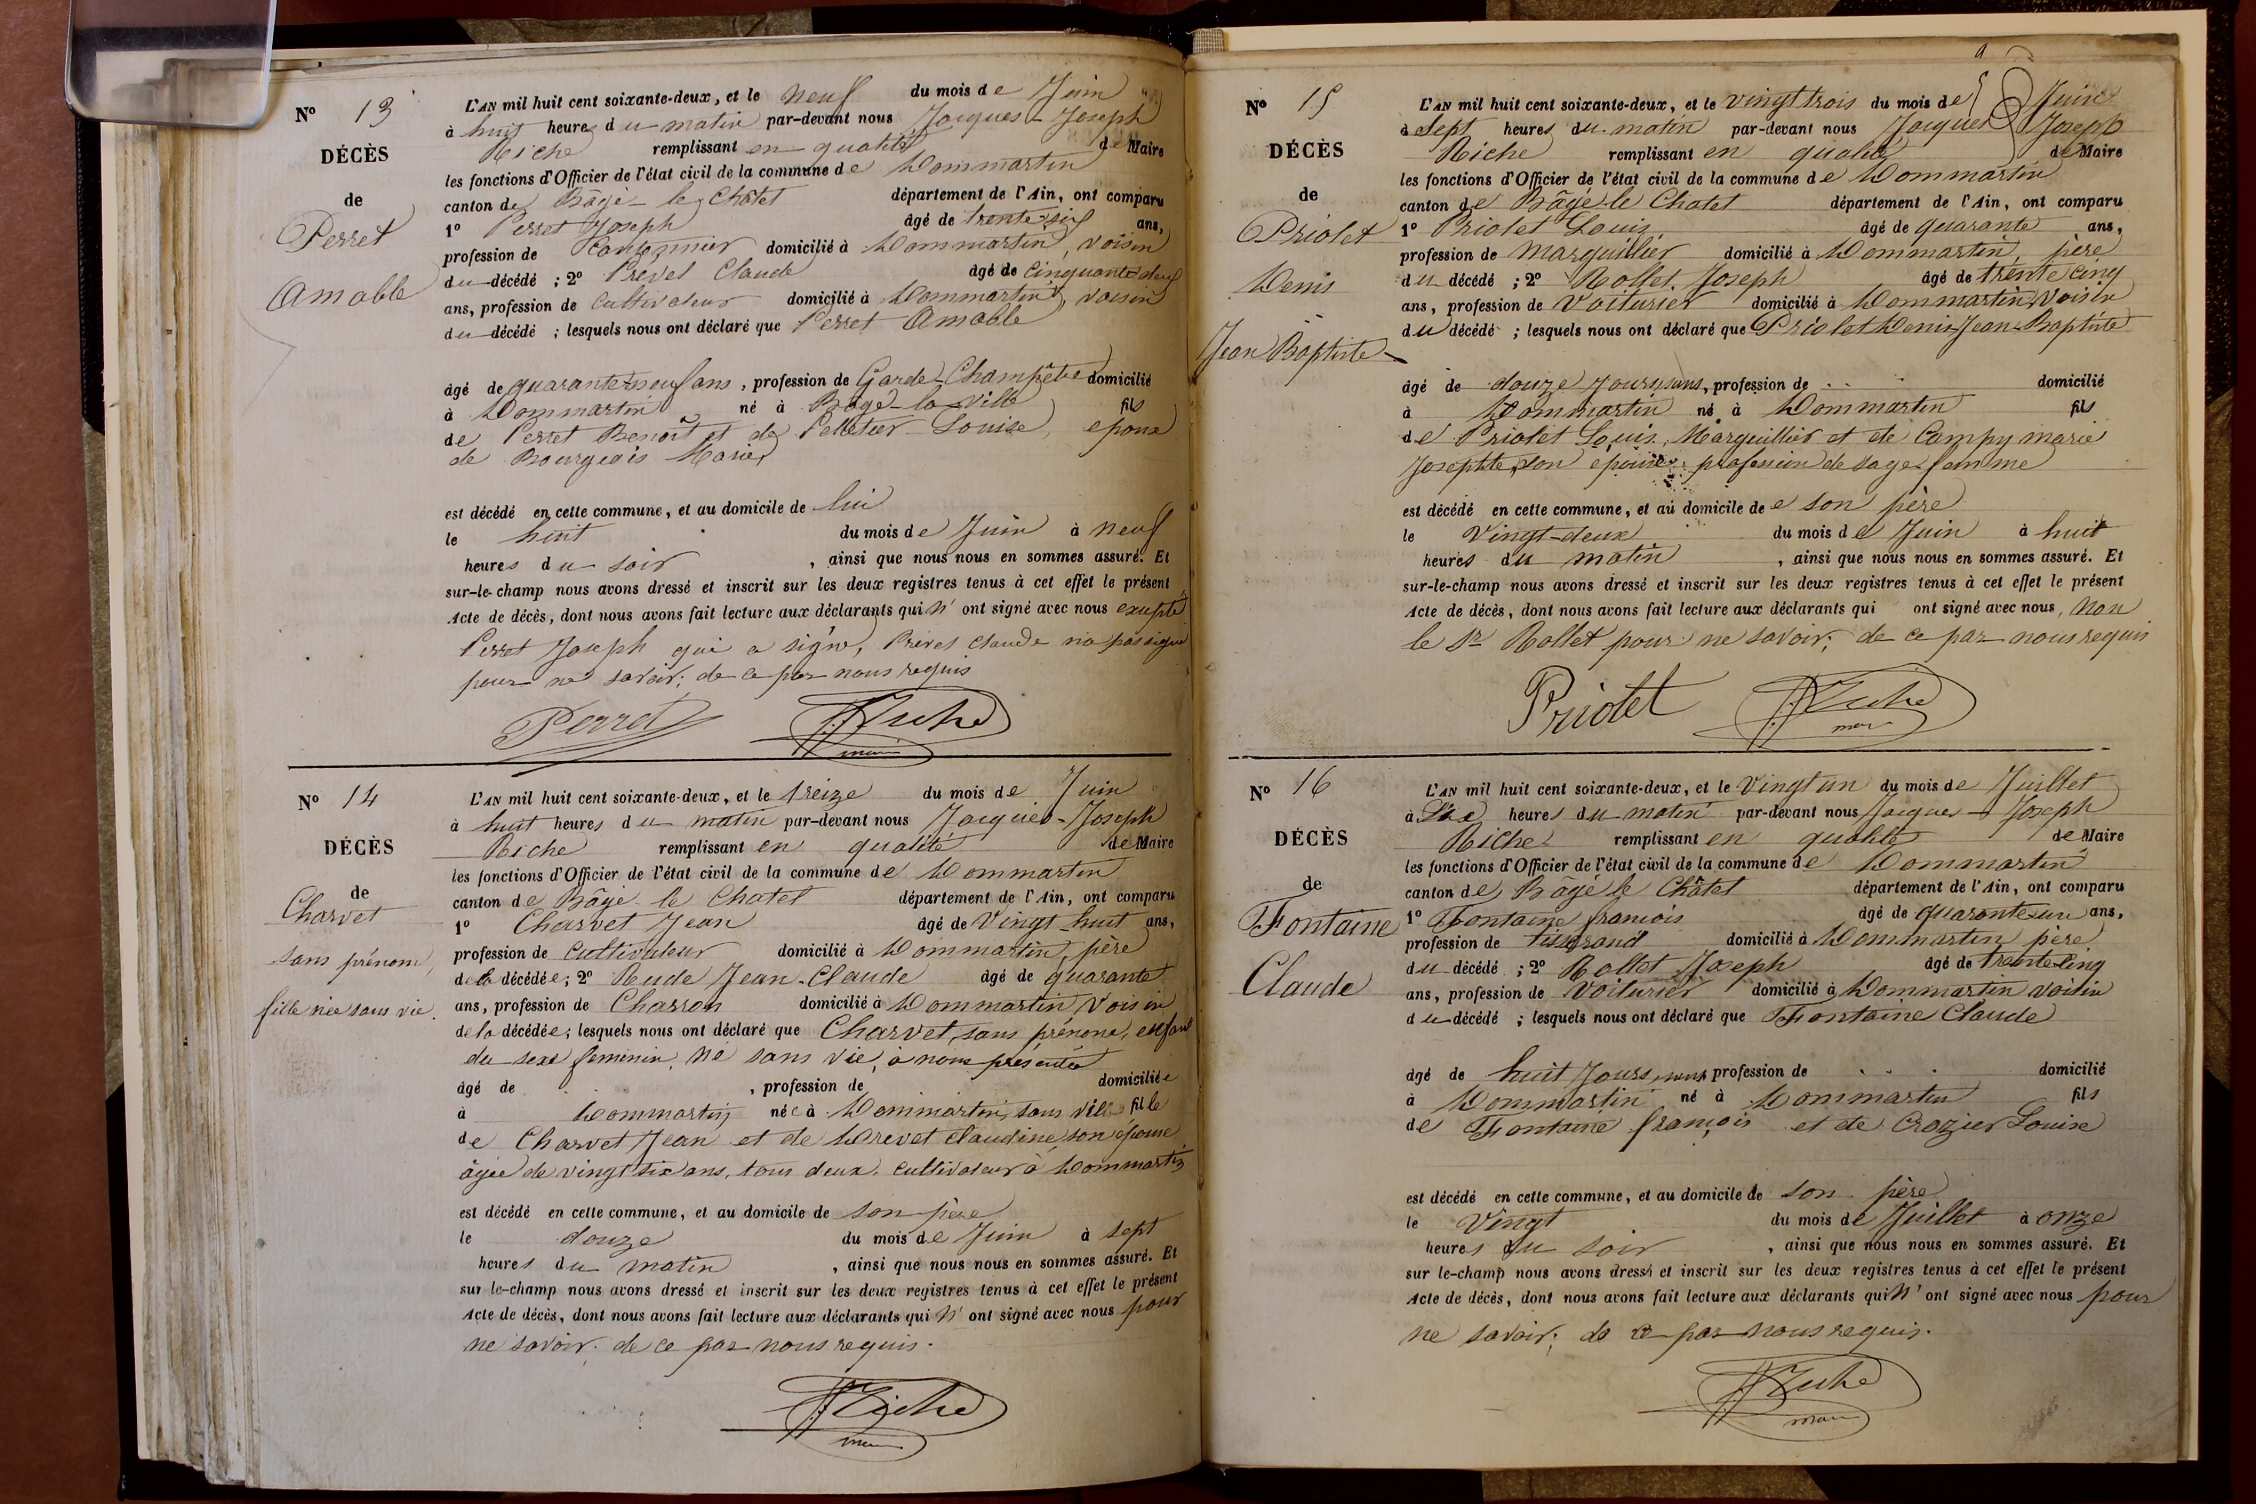 Nº 13
DÉCÈS
de
Perret
Amable
L'AN mil huit cent soixante-deux, et le neuf du mois de Juin
à huit heures du matin par-devant nous Jacques-Joseph
Riche remplissant en qualité de Maire
les fonctions d'Officier de l'état civil de la commune de Dommartin
canton de Bâgé-le-Châtel département de l'Ain, ont comparu
1º Perret Joseph âgé de trente-six ans,
profession de Cantonnier domicilié à Dommartin, voisin
du décédé ; 2º Prevel Claude âgé de cinquante-deux
ans, profession de Cultivateur domicilié à Dommartin, voisin
du décédé ; lesquels nous ont déclaré que Perret Amable
âgé de quarante-neuf ans, profession de Garde-Champêtre domicilié
à Dommartin né à Bâgé-la-Ville fils
de Perret Benoît et de Pelletier Louise, epoux
de Bourgeois Marie
est décédé en cette commune, et au domicile de lui
le huit du mois de Juin à neuf
heures du soir, ainsi que nous nous en sommes assuré. Et
sur-le-champ nous avons dressé et inscrit sur les deux registres tenus à cet effet le présent
Acte de décès, dont nous avons fait lecture aux déclarants qui n'ont signé avec nous excepté
Perret Joseph qui a signé, Prevel Claude n'a pas signé
pour ne savoir; de ce par nous requis
Perret JJ Riche
maire
Nº 14
DÉCÈS
de
Charvet
sans prénom,
fille née sans vie.
L'AN mil huit cent soixante-deux, et le treize du mois de Juin
à huit heures du matin par-devant nous Jacques-Joseph
Riche remplissant en qualité de Maire
les fonctions d'Officier de l'état civil de la commune de Dommartin
canton de Bâgé-le-Chatel département de l'Ain, ont comparu
1º Charvet Jean âgé de Vingt-huit ans,
profession de Cultivateur domicilié à Dommartin, père
de la décédée; 2º Rude Jean-Claude âgé de quarante
ans, profession de Charron domicilié à Dommartin, Voisin
de la décédée; lesquels nous ont déclaré que Charvet, sans prénom, enfant
du sexe feminin, né sans vie, à nous présentée
âgé de , profession de domiciliée
à Dommartin née à Dommartin, sans vie fille
de Charvet Jean et de Drevet Claudine, son épouse
âgée de vingt-six ans, tous deux cultivateurs à Dommartin
est décédé en cette commune, et au domicile de son père
le douze du mois de Juin à sept
heures du matin, ainsi que nous nous en sommes assuré. Et
sur-le-champ nous avons dressé et inscrit sur les deux registres tenus à cet effet le présent
Acte de décès, dont nous avons fait lecture aux déclarants qui n'ont signé avec nous pour
ne savoir, de ce par nous requis.
JJ Riche
maire
Nº 15
DÉCÈS
de
Priolet
Denis
Jean Baptiste
L'AN mil huit cent soixante-deux, et le vingt trois du mois de Juin
à Sept heures du matin par-devant nous Jacques Joseph
Riche remplissant en qualité de Maire
les fonctions d'Officier de l'état civil de la commune de Dommartin
canton de Bâgé-le Chatel département de l'Ain, ont comparu
1º Priolet Louis, âgé de quarante ans,
profession de Marguillier domicilié à Dommartin, père
du décédé ; 2º Rollet Joseph âgé de trente cinq
ans, profession de Voiturier domicilié à Dommartin, Voisin
du décédé ; lesquels nous ont déclaré que Priolet Denis-Jean-Baptiste
âgé de douze jours, ans, profession de domicilié
à Dommartin né à Dommartin fils
de Priolet Louis, Marguillier et de Campy marie
Josephte, son épouse, profession de sage-femme
est décédé en cette commune, et au domicile de e son père
le Vingt-deux du mois de Juin à huit
heures du matin, ainsi que nous nous en sommes assuré. Et
sur-le-champ nous avons dressé et inscrit sur les deux registres tenus à cet effet le présent
Acte de décès, dont nous avons fait lecture aux déclarants qui ont signé avec nous, Non
le Sr Rollet pour ne savoir; de ce par nous requis
Priolet JJ Riche
maire
Nº 16
DÉCÈS
de
Fontaine
Claude
L'AN mil huit cent soixante-deux, et le Vingt un du mois de Juillet
à Six heures du matin par-devant nous Jacques-Joseph
Riche remplissant en qualité de Maire
les fonctions d'Officier de l'état civil de la commune de Dommartin
canton de Bâgé-le Châtel département de l'Ain, ont comparu
1º Fontaine françois âgé de quarante-un ans,
profession de tisserand domicilié à Dommartin, père
du décédé ; 2º Rollet Joseph âgé de trente-cinq
ans, profession de Voiturier domicilié à Dommartin voisin
du décédé ; lesquels nous ont déclaré que Fontaine Claude
âgé de huit Jours, profession de domicilié
à Dommartin né à Dommartin fils
de Fontaine françois et de Crozier Louise
est décédé en cette commune, et au domicile de son père
le Vingt du mois de Juillet à onze
heures du soir, ainsi que nous nous en sommes assuré. Et
sur le-champ nous avons dressé et inscrit sur les deux registres tenus à cet effet le présent
Acte de décès, dont nous avons fait lecture aux déclarants qui n'ont signé avec nous pour
ne savoir; de ce par nous requis.
JJ Riche
maire